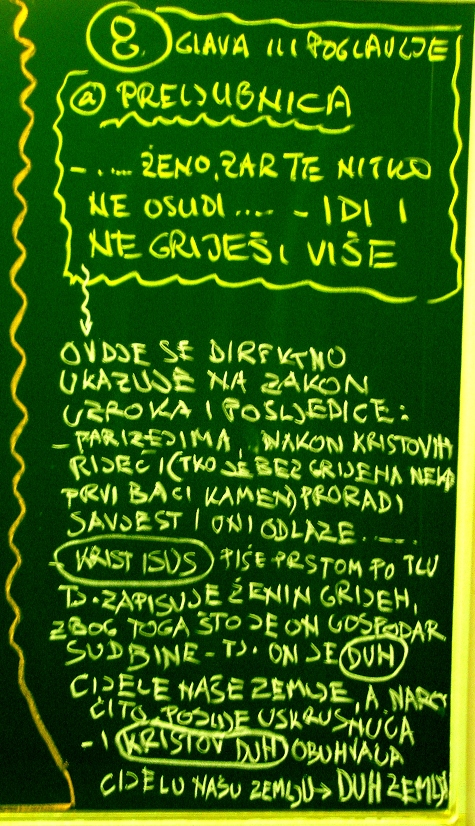 8. GLAVA ILI POGLAVLJE
a) PRELJUBNICA
- .... ŽENO, ZAR TE NITKO
NE OSUDI .... - IDI I
NE GRIJEŠI VIŠE
OVDJE SE DIREKTNO
UKAZUJE NA ZAKON
UZROKA I POSLJEDICE:
- FARIZEJIMA, NAKON KRISTOVIH
RIJEČI (TKO JE BEZ GRIJEHA NEKA
PRVI BACI KAMEN) PRORADI
SAVJEST I ONI ODLAZE .....
- KRIST ISUS PIŠE PRSTOM PO TLU
TJ. ZAPISUJE ŽENIN GRIJEH,
ZBOG TOGA ŠTO JE ON GOSPODAR
SUDBINE - TJ. ON JE DUH
CIJELE NAŠE ZEMLJE, A NARO
ČITO POSLIJE USKRSNUĆA
- I KRISTOV DUH OBUHVAĆA
CIJELU NAŠU ZEMLJU → DUH ZEMLJE